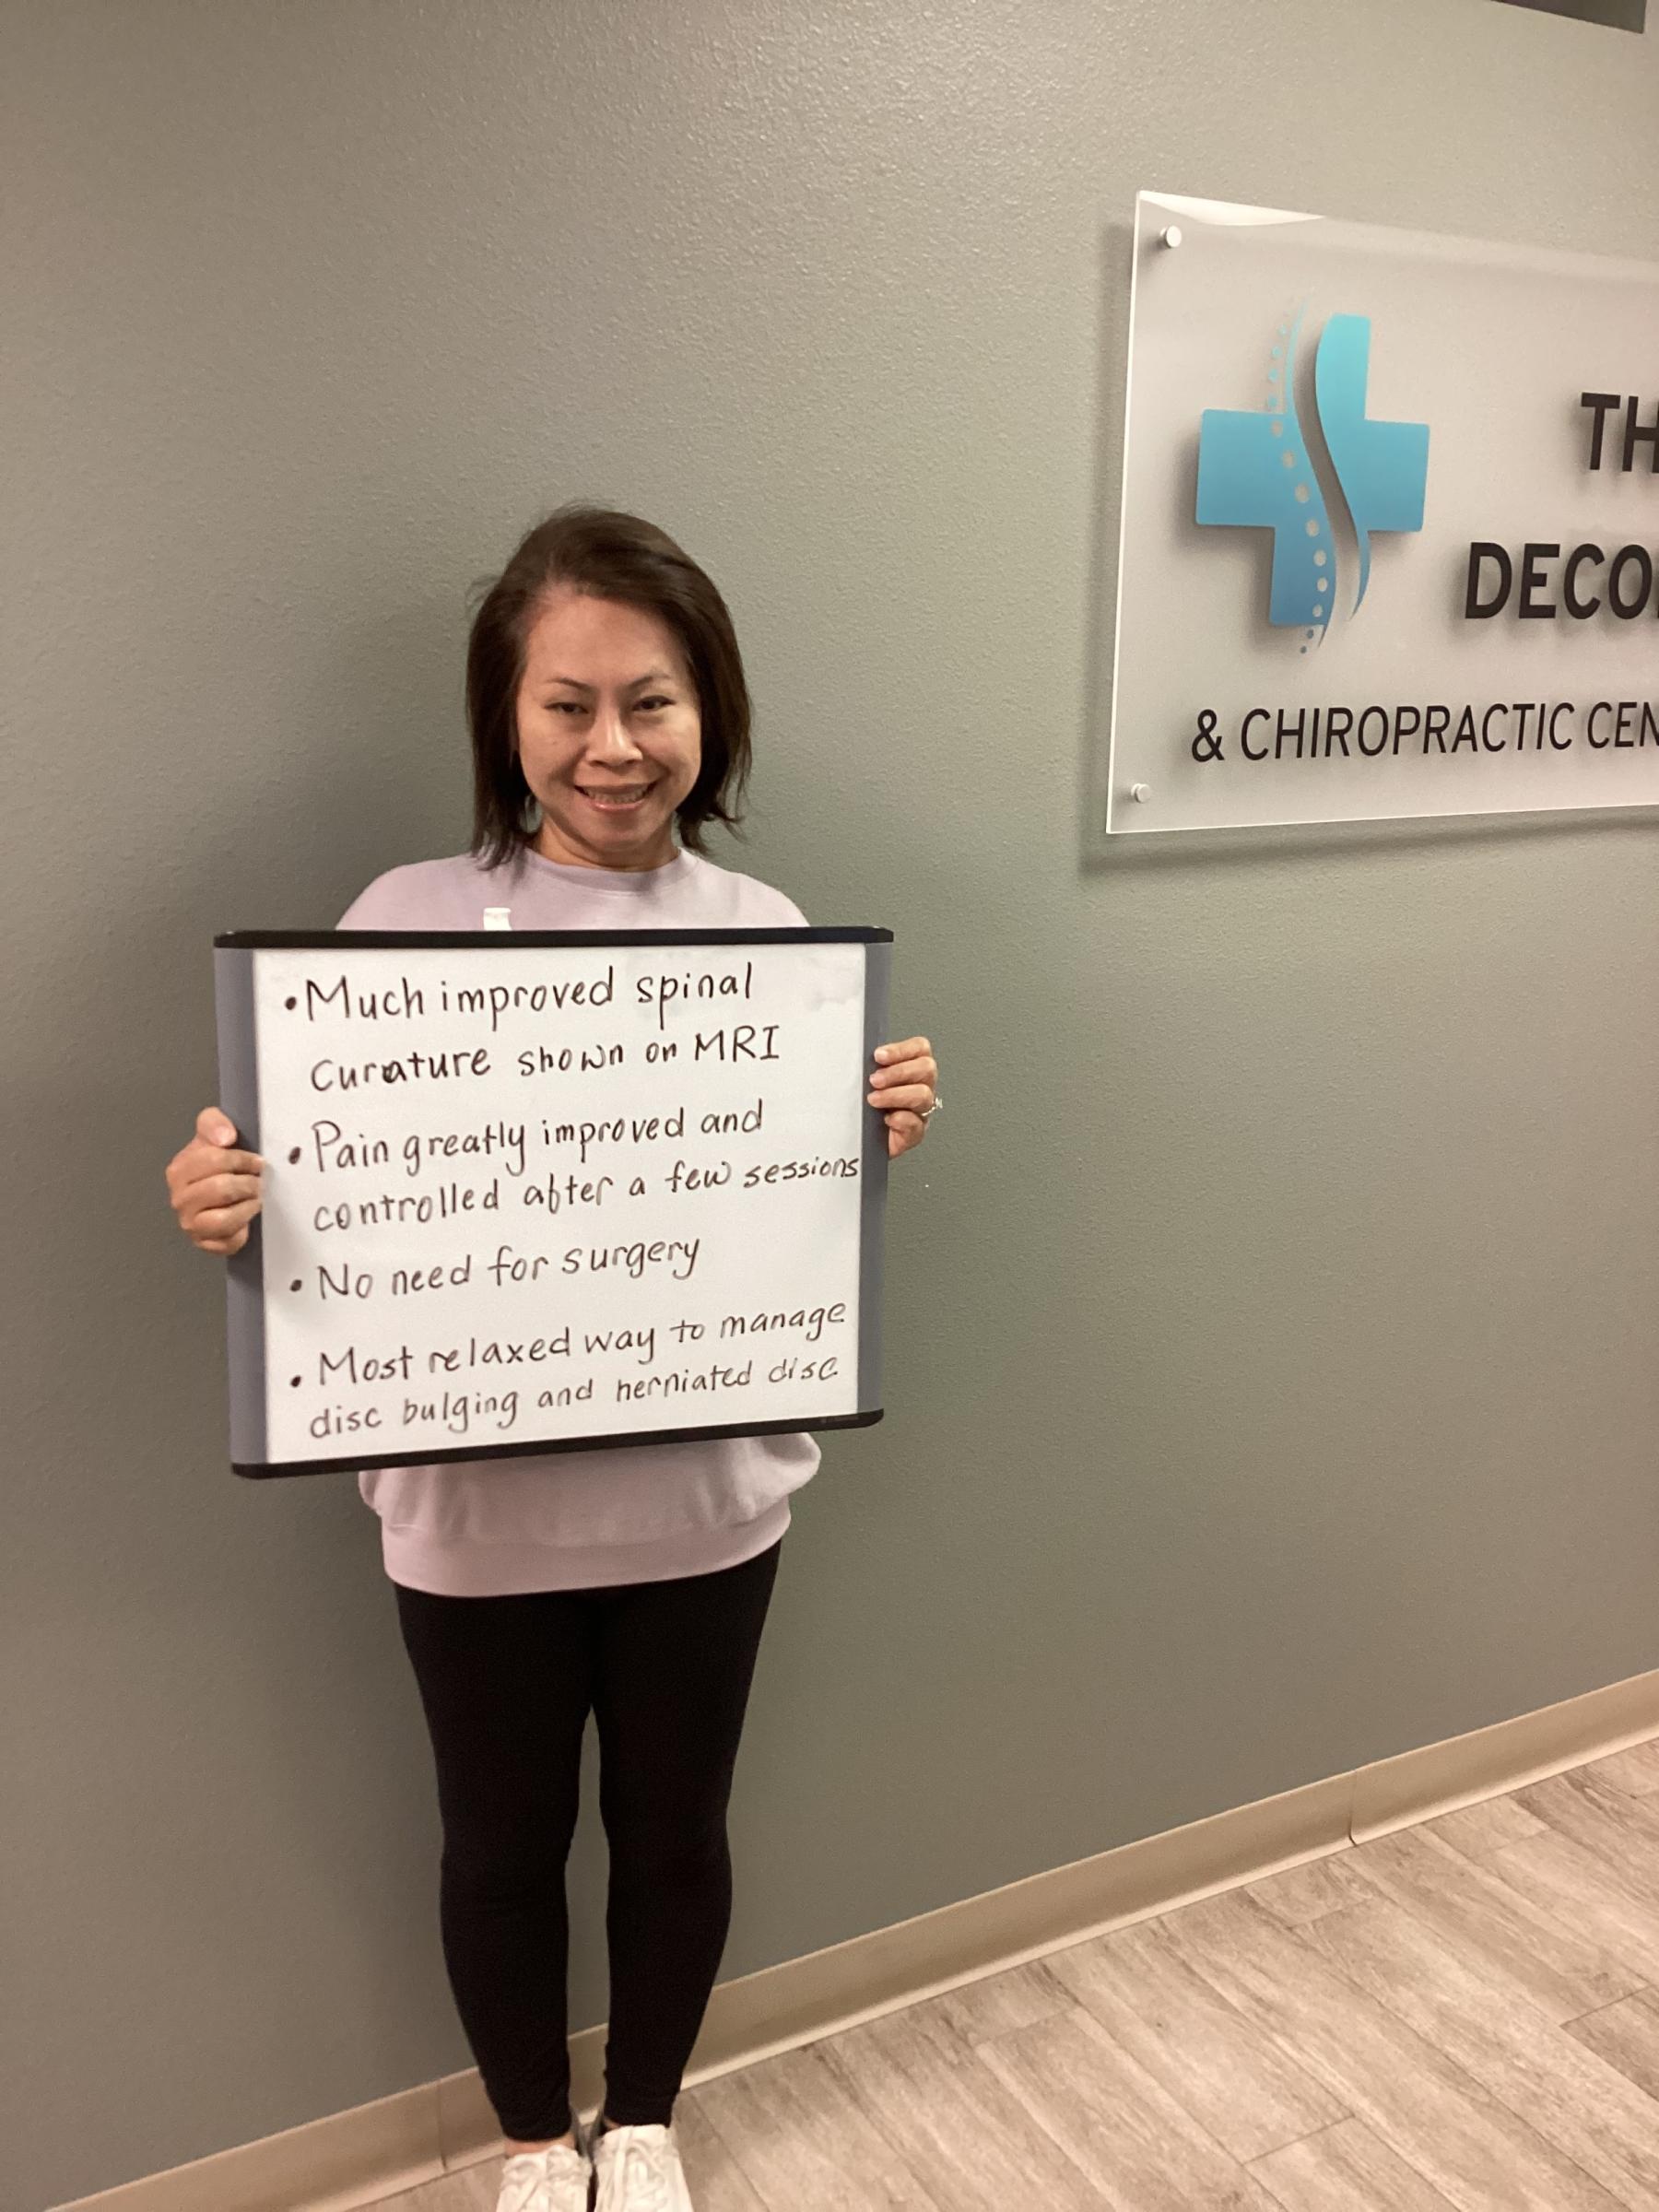 • Much improved spinal
Curature shown on MRI
• Pain greatly improved and
controlled after a few sessions
• No need for surgery
• Most relaxed way to manage
disc bulging and herniated disc
TH
DECO
& CHIROPRACTIC CEN